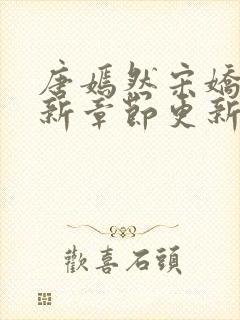 唐嫣然宋嬌
新章節更新
歡喜石頭